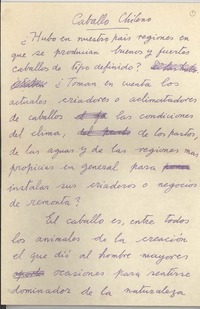 ①
Caballo Chileno
¿Hubo en nuestro país regiones en
que se producían buenos y fuertes
caballos de tipo definido?
¿Toman en cuenta los
actuales criadores o aclimatadores
de caballos las condiciones
del clima, de los pastos,
de las aguas y de las regiones mas
propicias en general para
instalar sus criaderos o negocios
de remonta?
El caballo es, entre todos
los animales de la creación
el que dió al hombre mayores
ocasiones para sentirse
dominador de la naturaleza